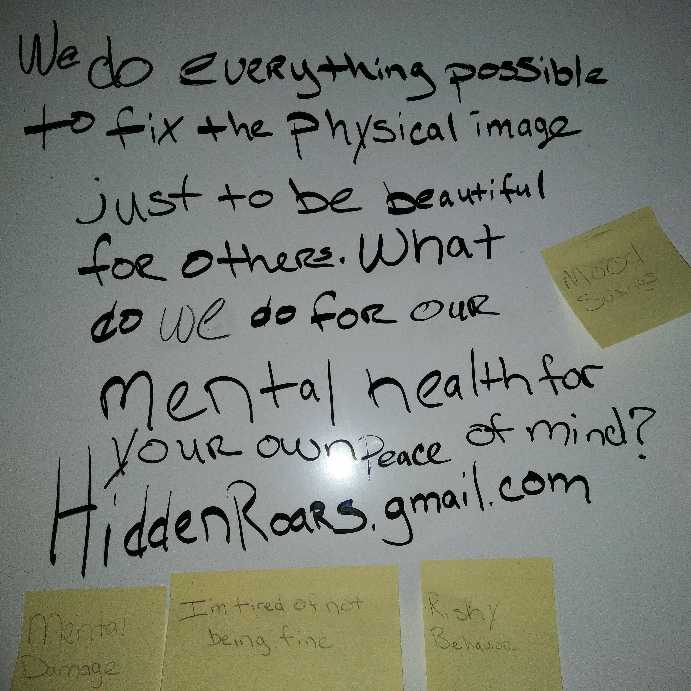 We do everything possible
to fix the physical image
just to be beautiful
for others. What
do we do for our
mental health for
your own peace of mind?
HiddenRoars.gmail.com
Mood
Swings
Mental
Damage
I'm tired of not
being fine
Risky
Behavior